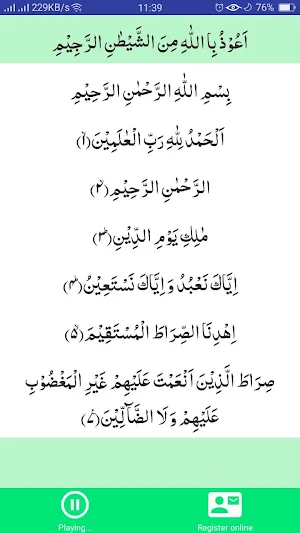 229KB/s 11:39 76%
اَعُوْذُ بِا اللّٰهِ مِنَ الشَّيْطٰنِ الرَّجِيْمِ
بِسْمِ اللّٰهِ الرَّحْمٰنِ الرَّحِيْمِ
اَلْحَمْدُ لِلّٰهِ رَبِّ الْعٰلَمِيْنَ﴿۱﴾
الرَّحْمٰنِ الرَّحِيْمِ﴿۲﴾
مٰلِكِ يَوْمِ الدِّيْنِ﴿۳﴾
اِيَّاكَ نَعْبُدُ وَ اِيَّاكَ نَسْتَعِيْنُ﴿۴﴾
اِهْدِنَا الصِّرَاطَ الْمُسْتَقِيْمَ﴿۵﴾
صِرَاطَ الَّذِيْنَ اَنْعَمْتَ عَلَيْهِمْ غَيْرِ الْمَغْضُوْبِ
عَلَيْهِمْ وَلَا الضَّآلِّيْنَ﴿۷﴾
Playing... Register online